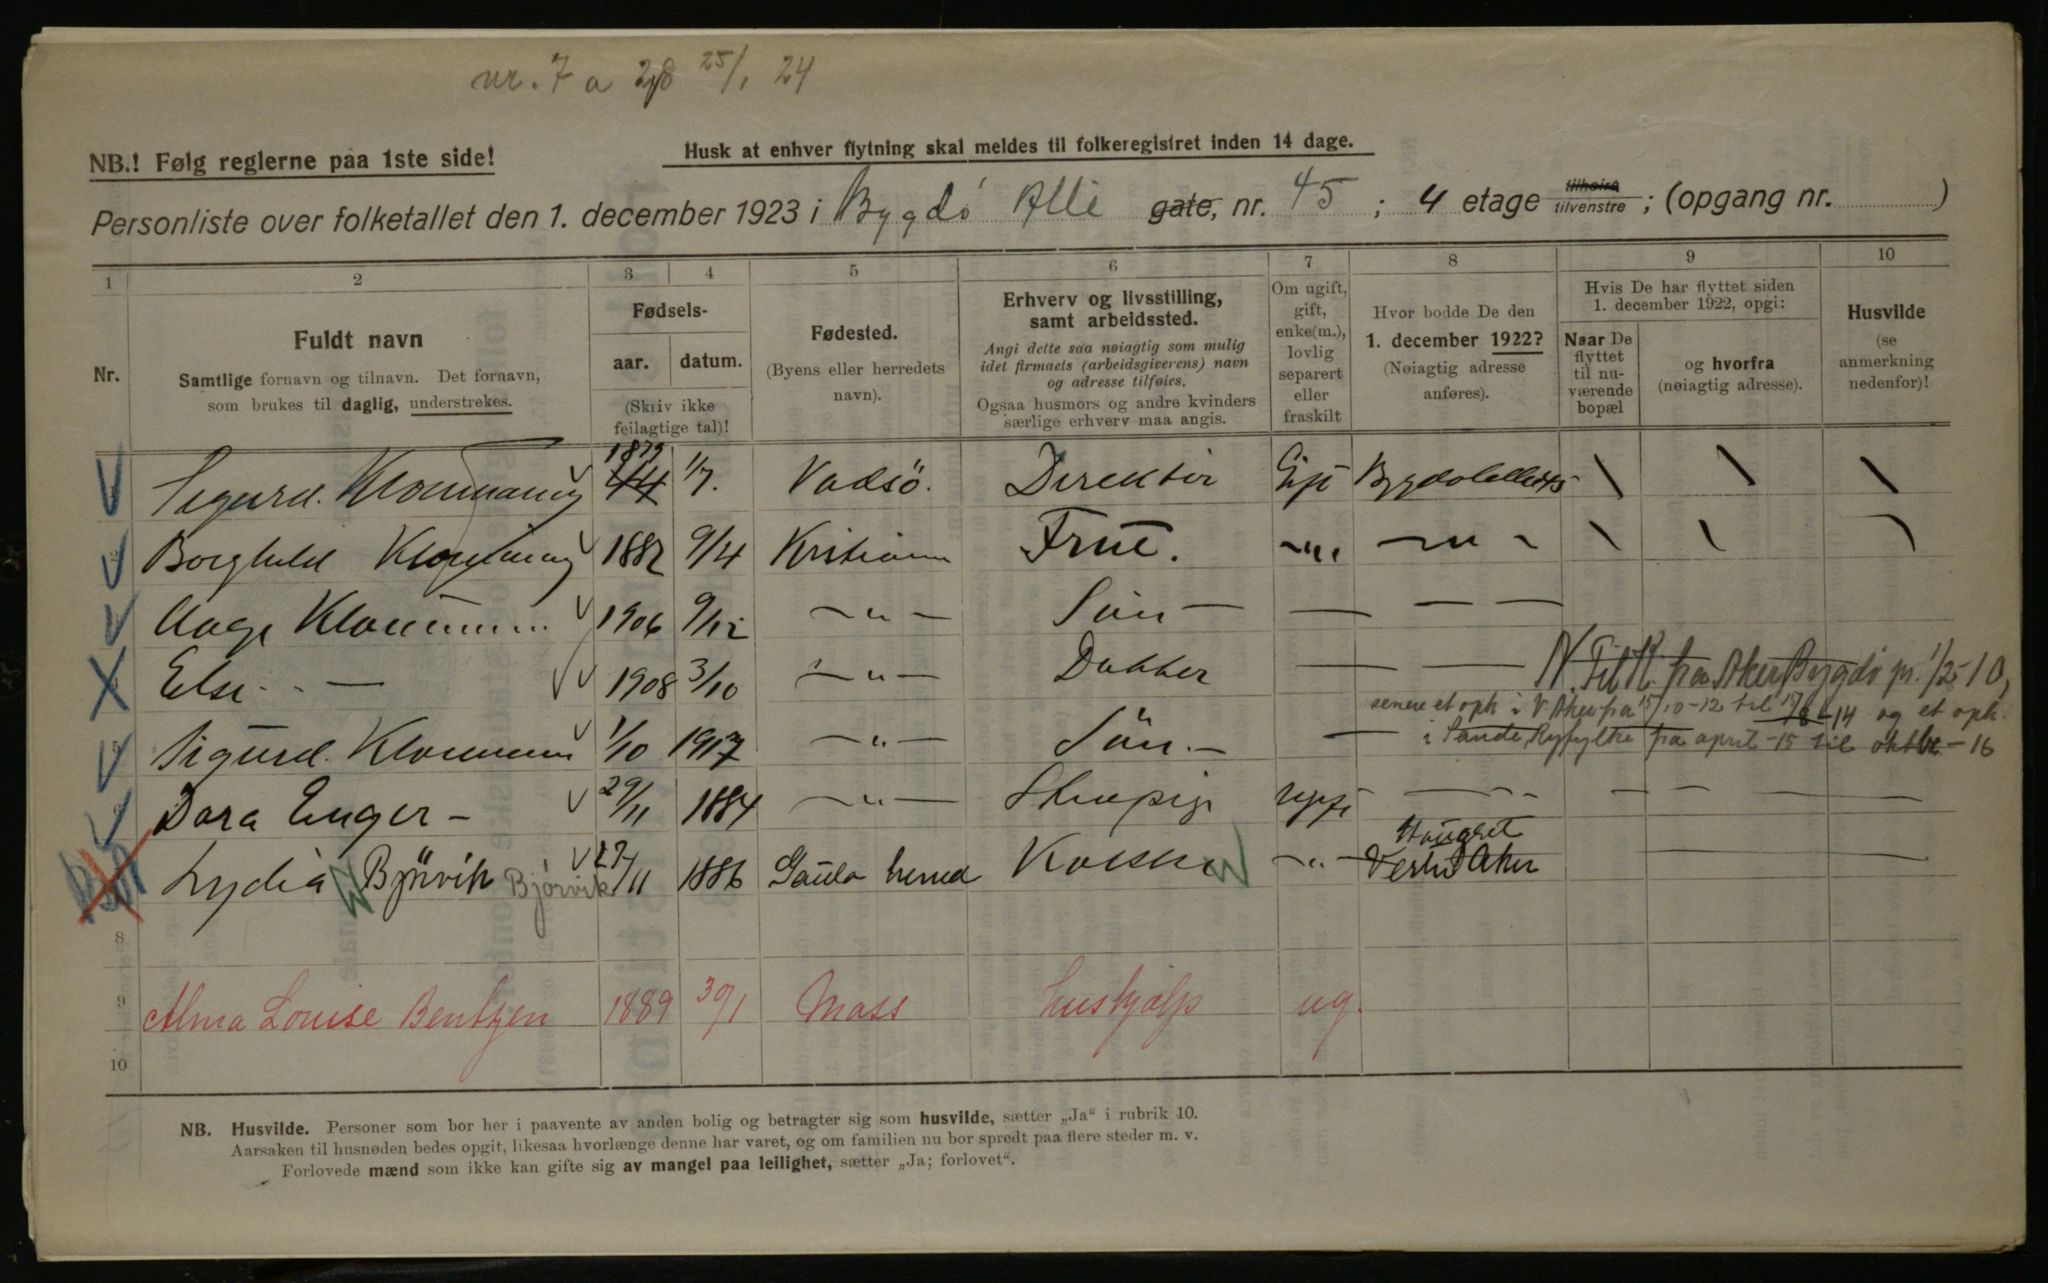 nr. 7 a 25/1 24
NB.! Følg reglerne paa 1ste side!
Husk at enhver flytning skal meldes til folkeregistret inden 14 dage.
Personliste over folketallet den 1. december 1923 i Bygdö Alle gate, nr. 45 ; 4 etage tilhøire tilvenstre ; (opgang nr. )
1 2 3 4 5 6 7 8 9 10
Nr.
Fuldt navn
Samtlige fornavn og tilnavn. Det fornavn,
som brukes til daglig, understrekes.
Fødsels-
aar. datum.
(Skriv ikke
feilagtige tal)!
Fødested.
(Byens eller herredets
navn).
Erhverv og livsstilling,
samt arbeidssted.
Angi dette saa nøiagtig som mulig
idet firmaets (arbeidsgiverens) navn
og adresse tilføies.
Ogsaa husmors og andre kvinders
særlige erhverv maa angis.
Om ugift,
gift,
enke(m.),
lovlig
separert
eller
fraskilt
Hvor bodde De den
1. december 1922?
(Nøiagtig adresse
anføres).
Hvis De har flyttet siden
1. december 1922, opgi:
Naar De
flyttet
til nu-
værende
bopæl
og hvorfra
(nøiagtig adresse).
Husvilde
(se
anmerkning
nedenfor)!
Sigurd. Kloumann 1879 1/7. Vadsö. Direktör Gift
Borghild Kloumann 1882 9/4 Kristiania Frue. -"- -"-
Aage Kloumann 1906 9/12 -"- Sön — — — —
Else — 1908 3/10 -"- Datter — —
N. Til K. fra Aker Bygdö pr. 1/2-10,
senere et oph i V Aker fra 15/10-12 til 14 og et oph.
i Sande, Ryfylke fra april -15 til oktbr -16
Sigurd. Kloumann 1/10 1917 -"- Sön. — —
Dora Enger - 29/11 1884 -"- ugift
Lydia Björvik Bjørvik 27/11 1886 Gaula herred Kokke -"- Vestre Aker
8
9 Alma Louise Bentzen 1889 30/1 Moss hushjælp ug.
10
NB. Husvilde. Personer som bor her i paavente av anden bolig og betragter sig som husvilde, sætter „Ja“ i rubrik 10.
Aarsaken til husnøden bedes opgit, likesaa hvorlænge denne har varet, og om familien nu bor spredt paa flere steder m. v.
Forlovede mænd som ikke kan gifte sig av mangel paa leilighet, sætter „Ja; forlovet“.